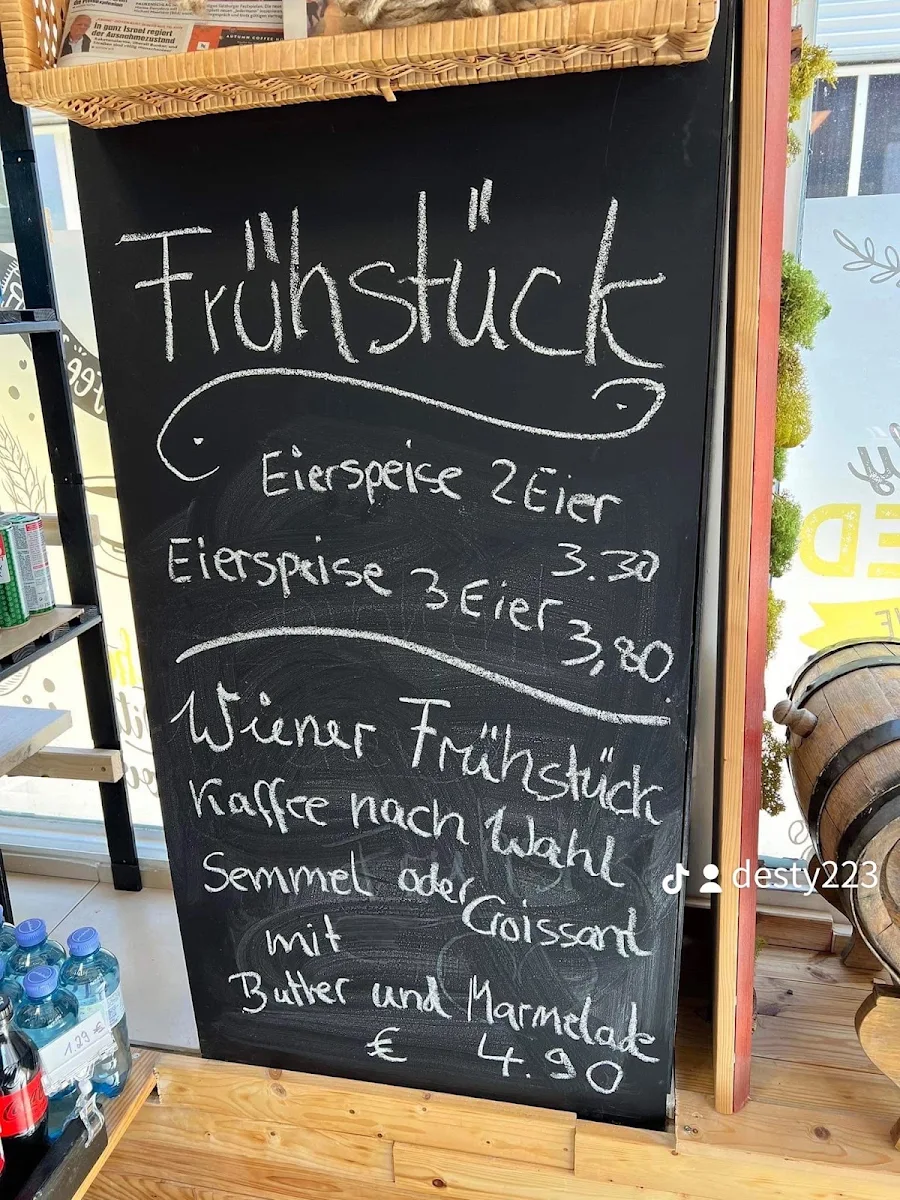 in ganz Israel regiert
der Ausnahmezustand
AUTUMN COFFEE
Frühstück
Eierspeise 2 Eier
3.30
Eierspeise 3 Eier
3,80
Wiener Frühstück
Kaffee nach Wahl
Semmel oder
Croissant
mit
Butter und Marmelade
€ 4.90
1.29 €
desty223